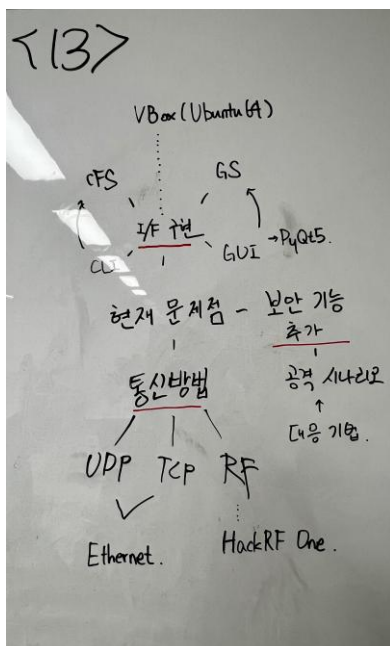 <13>
VBox (Ubuntu 64)
cFS
GS
I/F 구현
CLI
GUI →PyQt5.
현재 문제점 - 보안 기능
추가
통신방법
공격 시나리오
↑
대응 기법.
UDP TCP RF
Ethernet.
HackRF One.